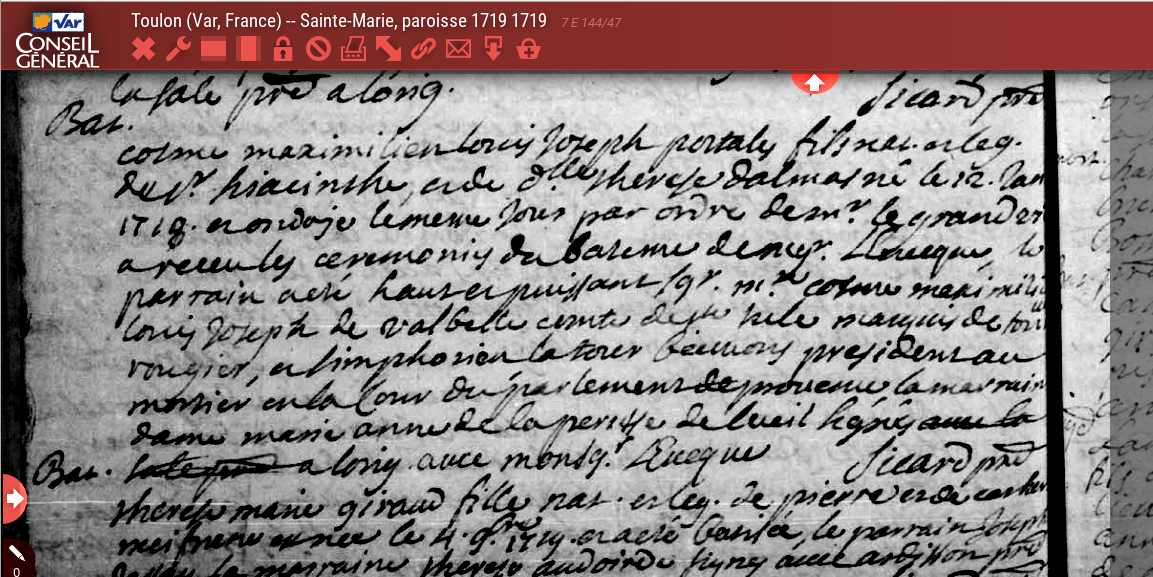 Toulon (Var, France) -- Sainte-Marie, paroisse 1719 1719 7 E 144/47
VAR
CONSEIL
GÉNÉRAL
la sale pre a long.
Sicard pre
Bat.
cosme maximilien louis Joseph portaly fils nat. et leg.
de Sr. hiacinthe, et de dlle therese dalmas né le 12. Jan
1718. et ondoje le meme Jour par ordre de mr. le grand
a receu les ceremonies du bateme de mgr. L'eveque le
parrain a eté haut et puissant sgr. mre cosme maximili
louis Joseph de valbelle comte de ste tule marquis de
rougier, et simphorien la tour president au
mortier en la Cour du parlement de provence la marrain
dame marie anne de la signés avec la
Bat. sale pre a long avec monsgr. L'Eveque Sicard pre
therese marie giraud fille nat. et leg. de pierre et de
née le 4. 9bre 1719. et a eté batisée, le parrain Joseph
la marraine therese signés avec pre
0